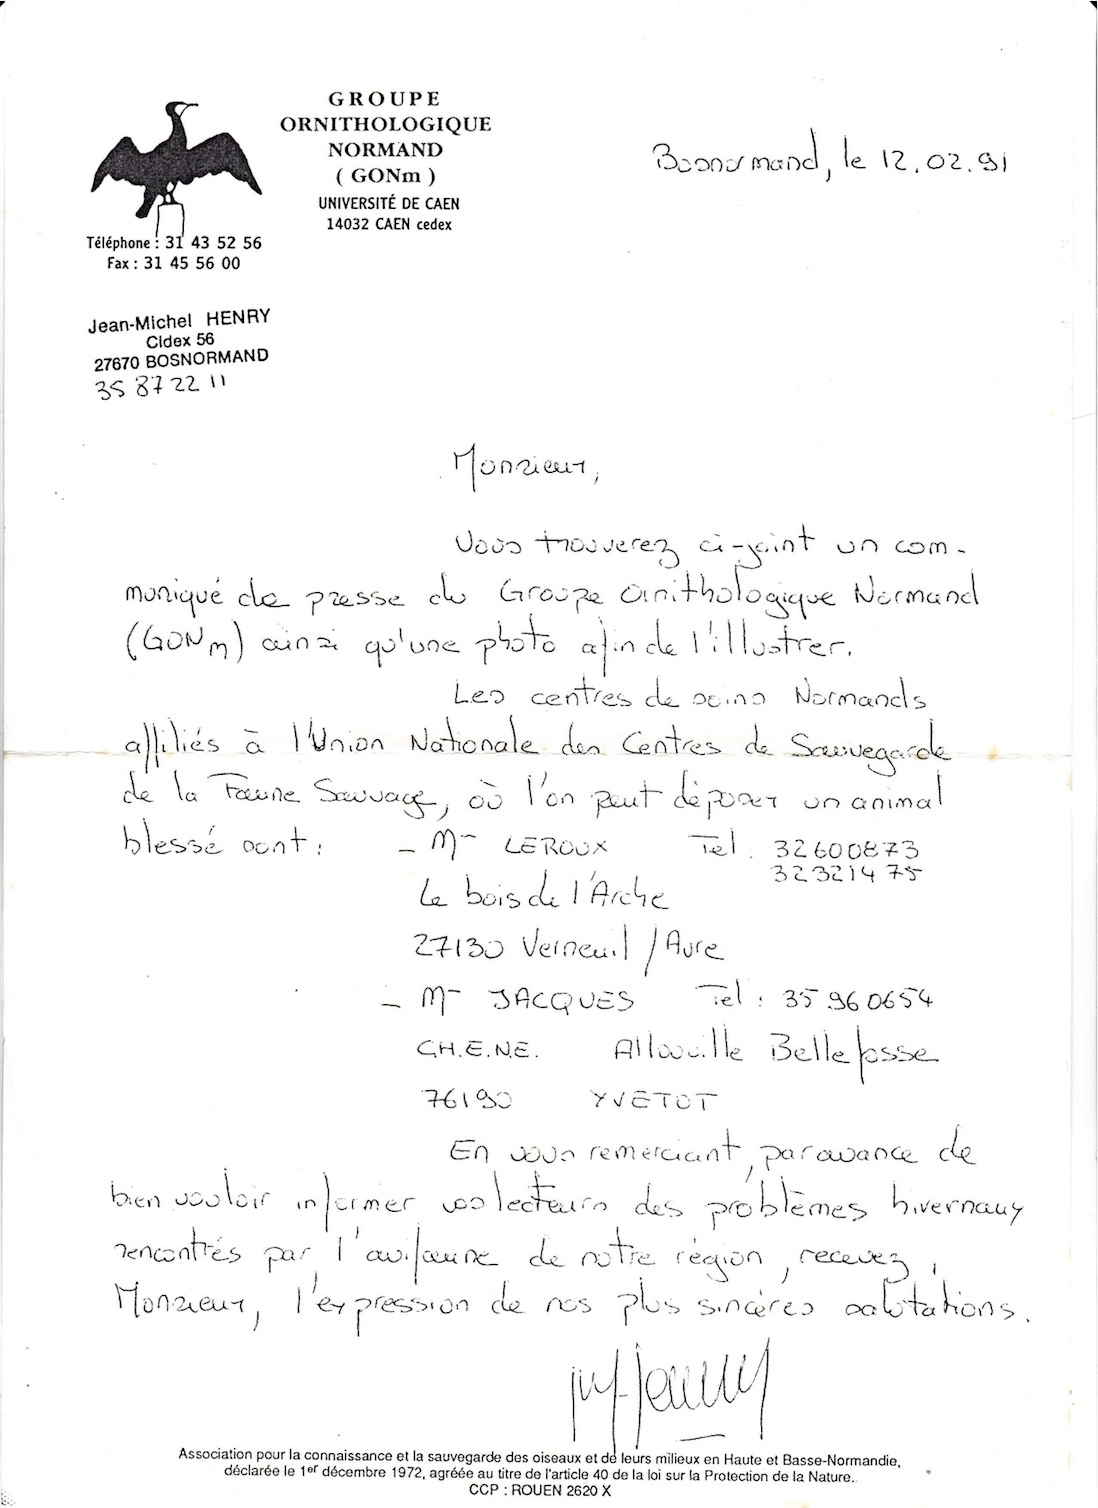 GROUPE
ORNITHOLOGIQUE
NORMAND
( GONm )
UNIVERSITÉ DE CAEN
14032 CAEN cedex
Téléphone : 31 43 52 56
Fax : 31 45 56 00
Bosnormand, le 12.02.91
Jean-Michel HENRY
Cidex 56
27670 BOSNORMAND
35 87 22 11
Monsieur,
Vous trouverez ci-joint un com-
muniqué de presse du Groupe Ornithologique Normand
(GONm) ainsi qu'une photo afin de l'illustrer.
Les centres de soins Normands
affiliés à l'Union Nationale des Centres de Sauvegarde
de la Faune Sauvage, où l'on peut déposer un animal
blessé sont :
- Mr LEROUX Tel : 32600873
32321475
Le bois de l'Arche
27130 Verneuil / Avre
- Mr JACQUES Tel : 35 960654
CH.E.NE. Allouville Bellefosse
76190 YVETOT
En vous remerciant, par avance de
bien vouloir informer vos lecteurs des problèmes hivernaux
rencontrés par l'avifaune de notre région, recevez,
Monsieur, l'expression de nos plus sincères salutations.
Association pour la connaissance et la sauvegarde des oiseaux et de leurs milieux en Haute et Basse-Normandie,
déclarée le 1er décembre 1972, agréée au titre de l'article 40 de la loi sur la Protection de la Nature.
CCP : ROUEN 2620 X